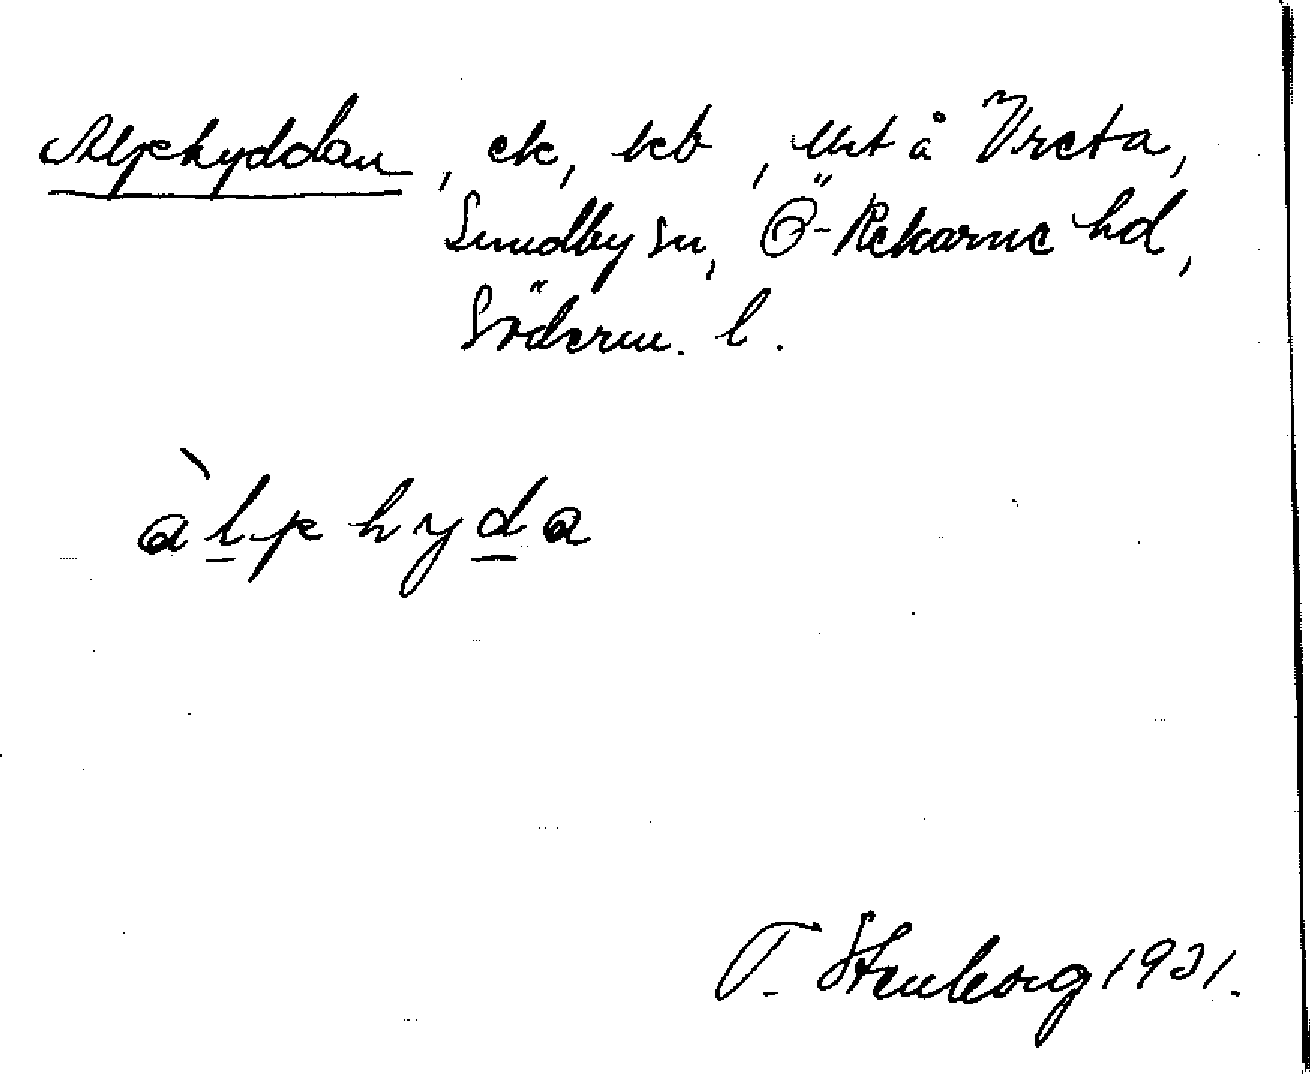 Alphyddan, ek, beb, utit å Vreta,
Sundby sn, Ö-Rekarne hd,
Söderm. l.
àlphyda
T. Stenborg 1931.